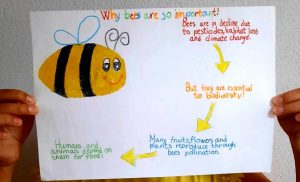 Why bees are so important!
Bees are in decline due
to pesticides, habitat loss
and climate change.
But they are essential
to biodiversity!
Many fruits, flowers and
plants reproduce through
bees pollination.
Humans and
animals depend on
them for food!